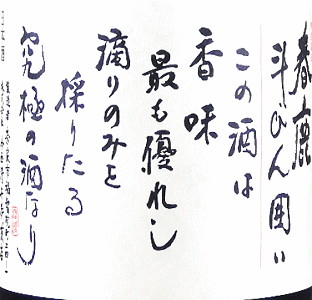 春鹿
斗びん囲い
この酒は
香味
最も優れし
滴りのみを
採りたる
究極の酒なり